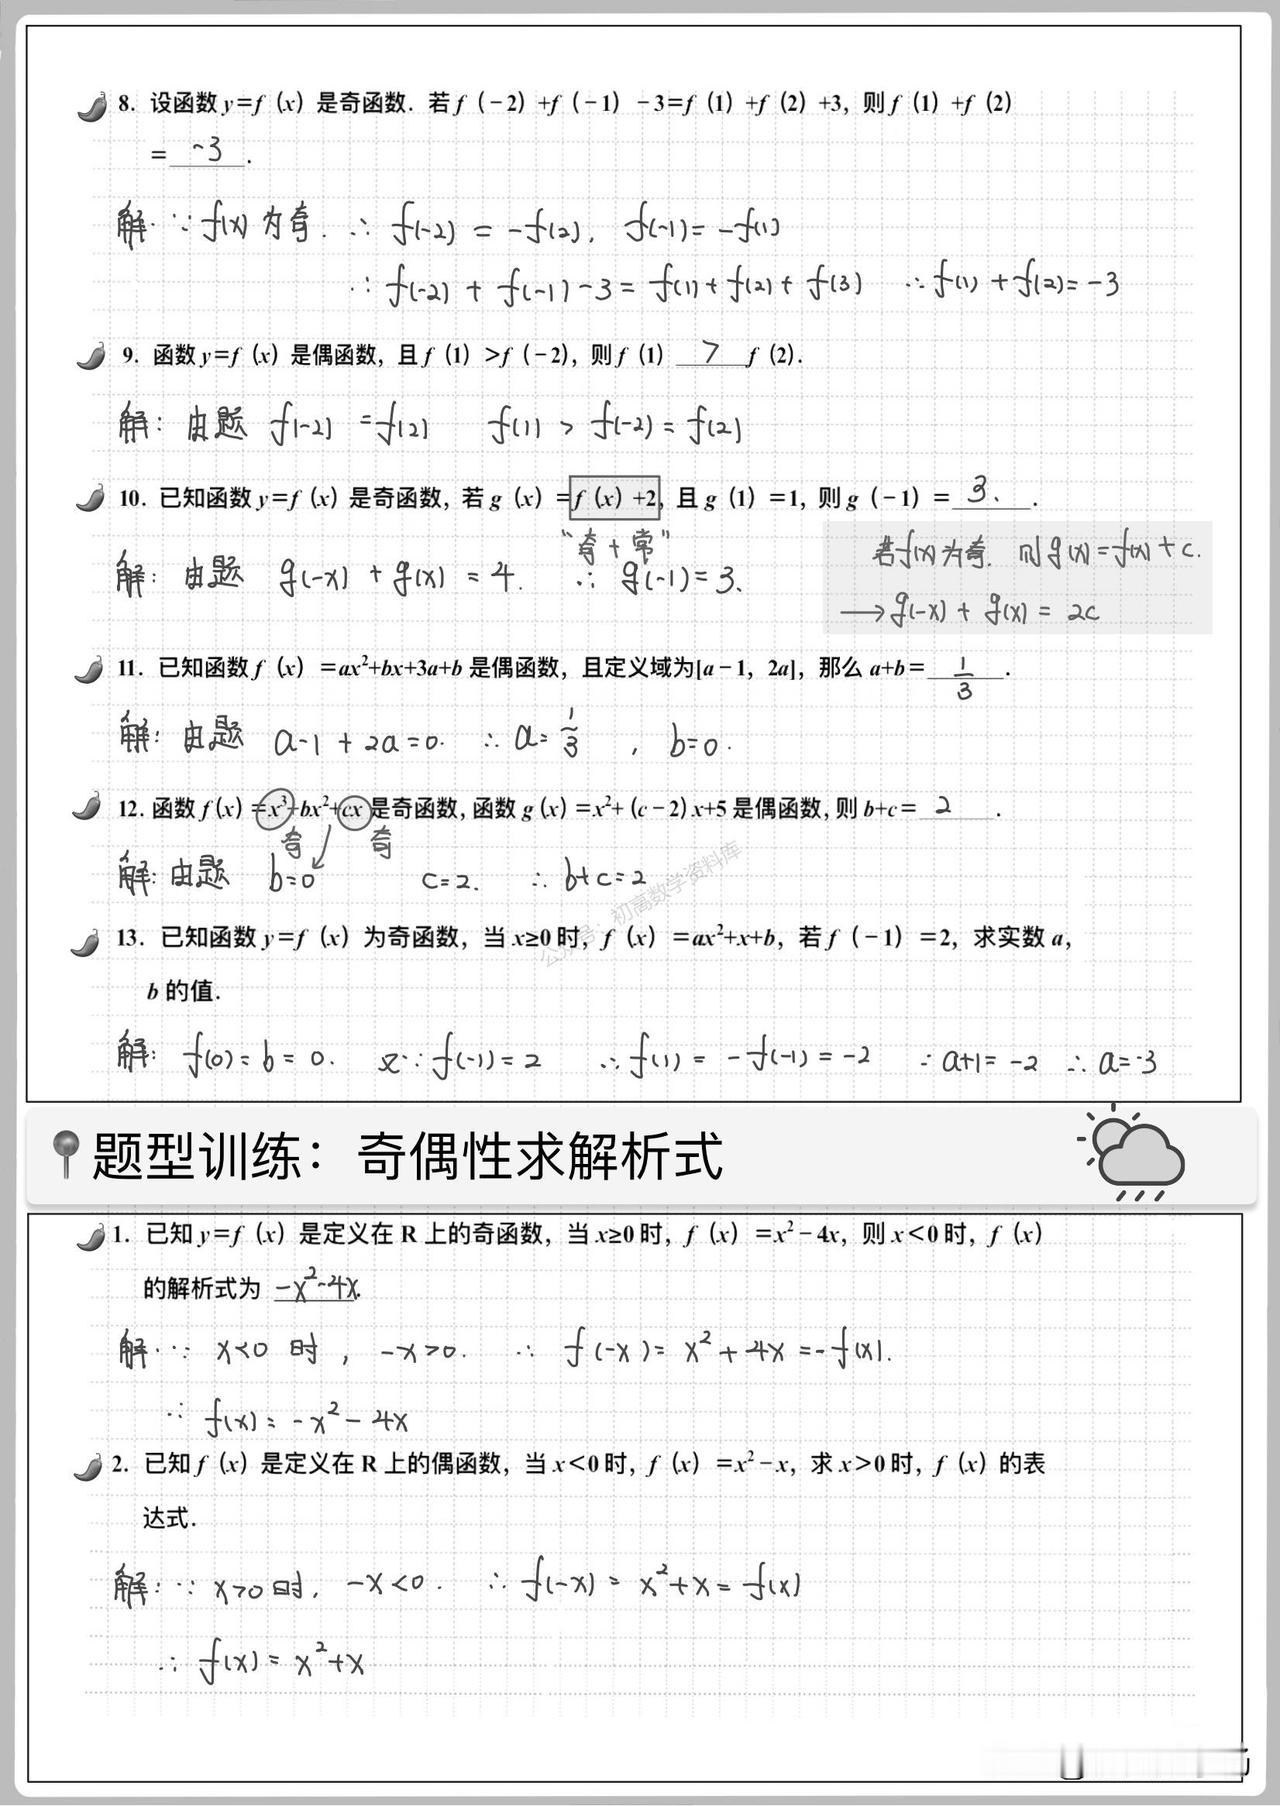 8. 设函数y=f（x）是奇函数. 若f（-2）+f（-1）-3=f（1）+f（2）+3, 则f（1）+f（2）
= -3 .
解: ∵ f(x)为奇. ∴ f(-2) = -f(2), f(-1)= -f(1)
∴ f(-2) + f(-1)-3 = f(1)+f(2)+f(3) ∴f(1)+f(2)=-3
9. 函数y=f（x）是偶函数, 且f（1）>f（-2）, 则f（1） > f（2）.
解: 由题 f(-2) =f(2) f(1) > f(-2) = f(2)
10. 已知函数y=f（x）是奇函数, 若g（x）=f（x）+2, 且g（1）=1, 则g（-1）= 3. .
“奇+常”
若f(x)为奇. 则g(x)=f(x)+c.
解: 由题 g(-x) + g(x) = 4. ∴ g(-1)=3.
→g(-x) + g(x) = 2c
11. 已知函数f（x）=ax²+bx+3a+b是偶函数, 且定义域为[a-1, 2a], 那么a+b= 1/3 .
解: 由题 a-1 + 2a=0. ∴ a= 1/3 , b=0.
12. 函数f(x)=x³+bx²+cx是奇函数, 函数g(x)=x²+(c-2)x+5是偶函数, 则b+c= 2 .
奇 奇
解: 由题 b=0 c=2. ∴ b+c=2
公众号：初高数学资料库
13. 已知函数y=f（x）为奇函数, 当x≥0时, f（x）=ax²+x+b, 若f（-1）=2, 求实数a,
b的值.
解: f(0)=b=0. 又∵f(-1)=2 ∴f(1) = -f(-1)=-2 ∴a+1=-2 ∴a=-3
题型训练：奇偶性求解析式
1. 已知y=f（x）是定义在R上的奇函数, 当x≥0时, f（x）=x²-4x, 则x<0时, f（x）
的解析式为 -x²-4x.
解: ∵ x<0 时, -x>0. ∴ f(-x)= x²+4x=-f(x).
∵ f(x)= -x²-4x
2. 已知f（x）是定义在R上的偶函数, 当x<0时, f（x）=x²-x, 求x>0时, f（x）的表
达式.
解: ∵ x>0时, -x<0. ∴ f(-x) = x²+x= f(x)
∴ f(x)= x²+x